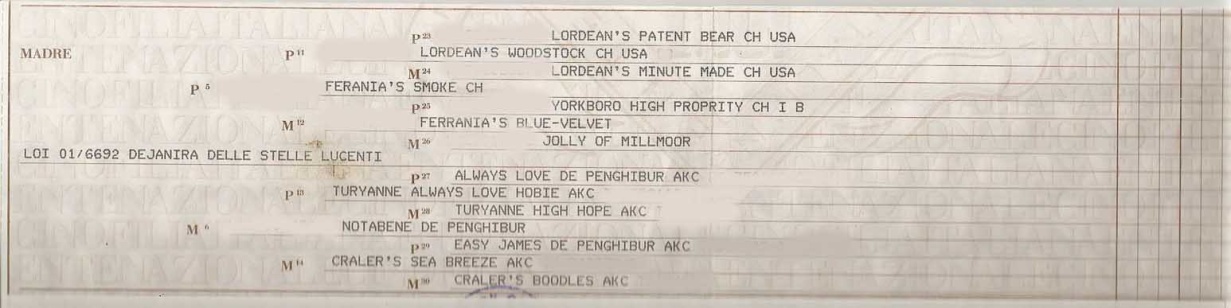 P 23 LORDEAN'S PATENT BEAR CH USA
MADRE P 11 LORDEAN'S WOODSTOCK CH USA
M 24 LORDEAN'S MINUTE MADE CH USA
P 5 FERANIA'S SMOKE CH
P 25 YORKBORO HIGH PROPRITY CH I B
M 12 FERRANIA'S BLUE-VELVET
M 26 JOLLY OF MILLMOOR
LOI 01/6692 DEJANIRA DELLE STELLE LUCENTI
P 27 ALWAYS LOVE DE PENGHIBUR AKC
P 13 TURYANNE ALWAYS LOVE HOBIE AKC
M 28 TURYANNE HIGH HOPE AKC
M 6 NOTABENE DE PENGHIBUR
P 29 EASY JAMES DE PENGHIBUR AKC
M 14 CRALER'S SEA BREEZE AKC
M 30 CRALER'S BOODLES AKC